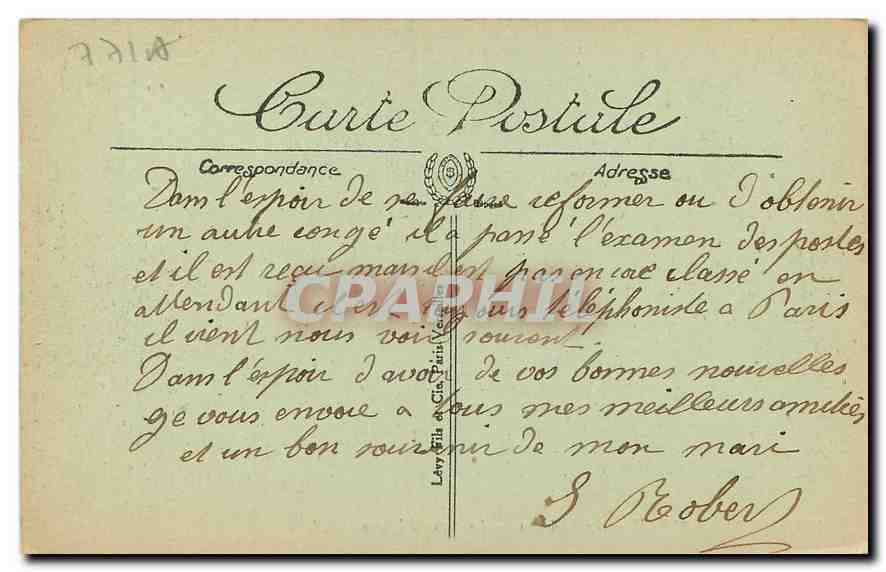 Carte Postale
Correspondance
Adresse
Dans l'espoir de se faire reformer ou d'obtenir
un autre congé il a passé l'examen des postes
et il est reçu mais il est pas encore classé en
attendant il est toujours téléphoniste a Paris
il vient nous voir souvent.
Dans l'éspoir d'avoir de vos bonnes nouvelles
ge vous envoie a tous mes meilleurs amitiés
et un bon souvenir de mon mari
S Robert
Lévy Fils et Cie, Paris-Versailles
CPAPHIL